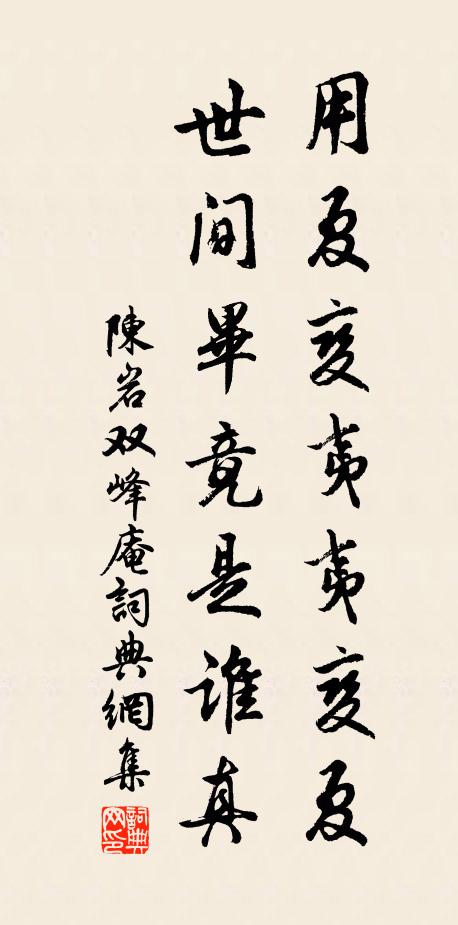 用夏变夷夷变夏
世间畢竟是谁真
陳岩双峰庵詞典網集
詞典网印